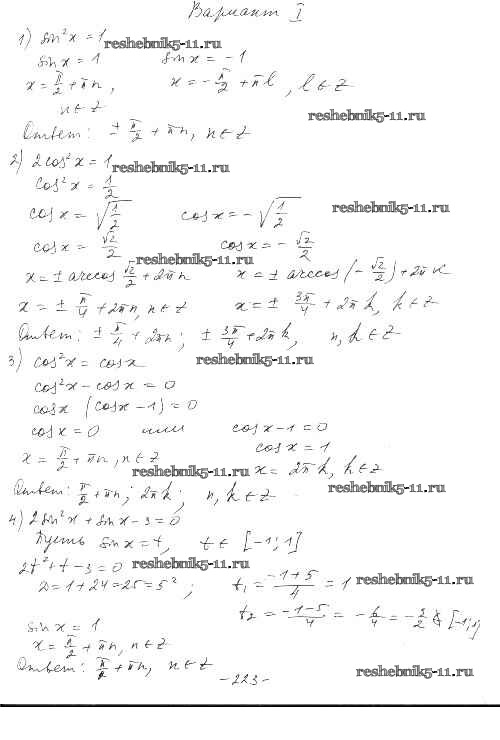 Вариант I
1) sin²x = 1
reshebnik5-11.ru
sin x = 1 sin x = -1
x = π/2 + πn, x = -π/2 + πl, l ∈ Z
n ∈ Z
reshebnik5-11.ru
Ответ: ± π/2 + πn, n ∈ Z
2) 2cos²x = 1
reshebnik5-11.ru
cos²x = 1/2
cos x = √(1/2) cos x = -√(1/2)
reshebnik5-11.ru
cos x = √2/2 cos x = -√2/2
reshebnik5-11.ru
x = ± arccos √2/2 + 2πn x = ± arccos(-√2/2) + 2πk
x = ± π/4 + 2πn, n ∈ Z x = ± 3π/4 + 2πk, k ∈ Z
Ответ: ± π/4 + 2πn; ± 3π/4 + 2πk, n, k ∈ Z
3) cos²x = cos x
reshebnik5-11.ru
cos²x - cos x = 0
cos x (cos x - 1) = 0
cos x = 0 или cos x - 1 = 0
cos x = 1
x = π/2 + πn, n ∈ Z x = 2πk, k ∈ Z
reshebnik5-11.ru
Ответ: π/2 + πn; 2πk; n, k ∈ Z
reshebnik5-11.ru
4) 2sin²x + sin x - 3 = 0
Пусть sin x = t, t ∈ [-1; 1]
2t² + t - 3 = 0
reshebnik5-11.ru
D = 1 + 24 = 25 = 5²; t₁ = (-1+5)/4 = 1
reshebnik5-11.ru
t₂ = (-1-5)/4 = -6/4 = -3/2 ∉ [-1; 1]
sin x = 1
x = π/2 + πn, n ∈ Z
Ответ: π/2 + πn, n ∈ Z
-223-
reshebnik5-11.ru